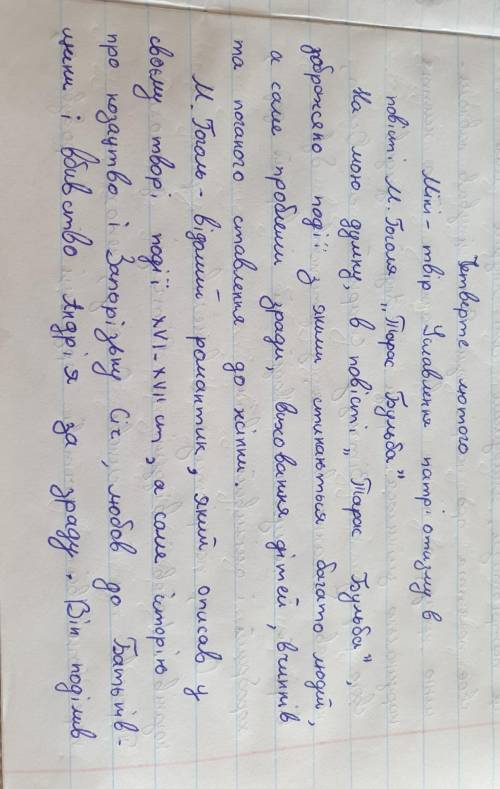 Четверте лютого
Міні-твір Уславлення патріотизму в
повісті М. Гоголя „Тарас Бульба"
На мою думку, в повісті „Тарас Бульба",
зображено події з якими стикаються багато людей,
а саме проблеми зради, виховання дітей, вчинків
та поганого ставлення до жінки.
М. Гоголь - відомий романтик, який описав у
своєму творі події XVI-XVII ст, а саме історію
про козацтво і Запорізьку Січ, любов до Батьків-
щини і вбивство Андрія за зраду. Він поділив